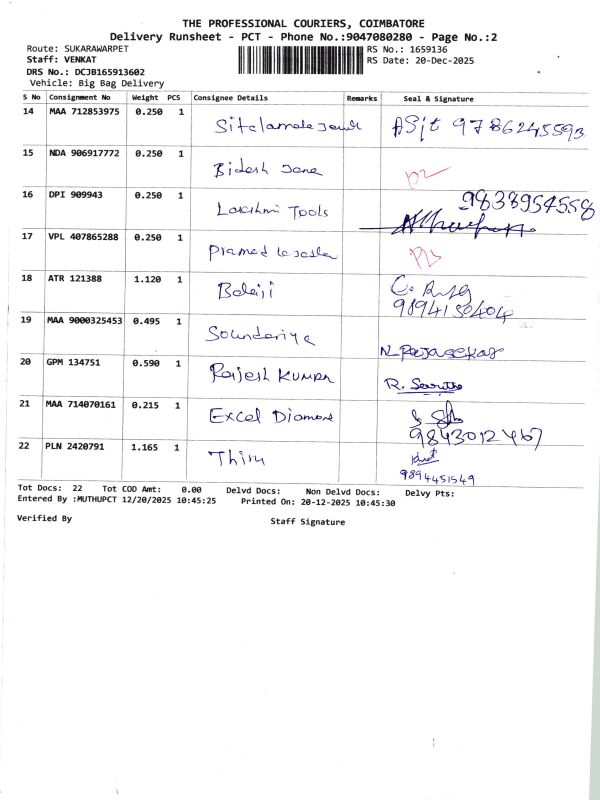 THE PROFESSIONAL COURIERS, COIMBATORE
Delivery Runsheet - PCT - Phone No.:9047080280 - Page No.:2
Route: SUKARAWARPET RS No.: 1659136
Staff: VENKAT RS Date: 20-Dec-2025
DRS No.: DCJB165913602
Vehicle: Big Bag Delivery
S No Consignment No Weight PCS Consignee Details Remarks Seal & Signature
14 MAA 712853975 0.250 1
Asjt 9786245593
15 NDA 906917772 0.250 1
Bidesh Jana
16 DPI 909943 0.250 1 9838954558
Lakshmi Tools
17 VPL 407865288 0.250 1
18 ATR 121388 1.120 1
Balaji
9894150404
19 MAA 9000325453 0.495 1
Sounderiya
N. Rajasekar
20 GPM 134751 0.590 1
Rajesh Kumar
21 MAA 714070161 0.215 1
Excel Diamond
9843012467
22 PLN 2420791 1.165 1
Thiru
9894451549
Tot Docs: 22 Tot COD Amt: 0.00 Delvd Docs: Non Delvd Docs: Delvy Pts:
Entered By :MUTHUPCT 12/20/2025 10:45:25 Printed On: 20-12-2025 10:45:30
Verified By Staff Signature